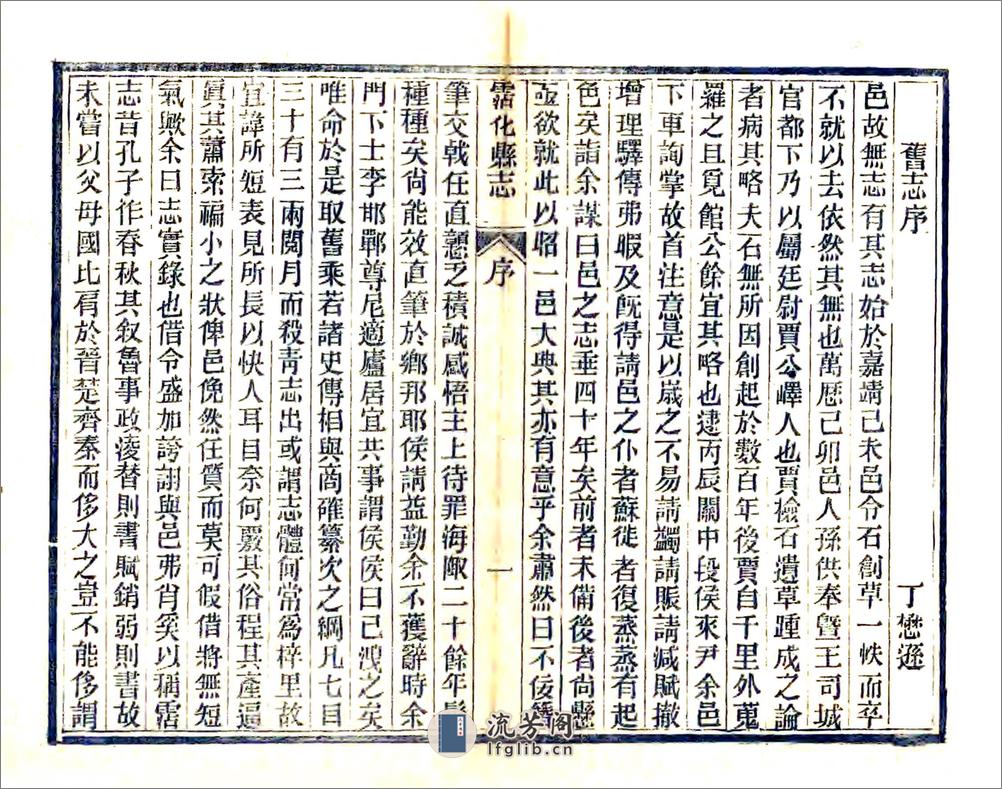 舊志序
丁懋遜
邑故無志有其志始於嘉靖己未邑令石創草一帙而卒
不就以去依然其無也萬歷己卯邑人孫供奉暨王司城
官都下乃以屬廷尉賈公嶧人也賈檢石遺草踵成之論
者病其略夫石無所因創起於數百年後賈自千里外蒐
羅之且覓館公餘宜其略也逮丙辰關中段侯來尹余邑
下車詢掌故首注意是以歲之不易請蠲請賑請減賦撤
增理驛傳弗暇及旣得請邑之仆者蘇徙者復蒸蒸有起
色矣詣余謀曰邑之志垂四十年矣前者未備後者尚懸
亟欲就此以昭一邑大典其亦有意乎余肅然曰不佞簪
霑化縣志
序
一
筆交戟任直戇乏積誠感悟主上待罪海陬二十餘年髮
種種矣尚能效直筆於鄉邦耶侯請益勤余不獲辭時余
門下士李邯鄲尊尼適廬居宜共事謂侯侯曰已溲之矣
唯命於是取舊乘若諸史傳相與商確纂次之綱凡七目
三十有三兩閱月而殺靑志出或謂志體何常為梓里故
宜諱所短表見所長以快人耳目奈何覈其俗程其產逼
眞其蕭索褊小之狀俾邑俛然任質而莫可假借將無短
氣歟余曰志實錄也借令盛加誇詡與邑弗肖奚以稱霑
志昔孔子作春秋其叙魯事政淩替則書賦銷弱則書故
未嘗以父母國比肩於晉楚齊秦而侈大之豈不能侈謂
流芳阁
lfglib.cn